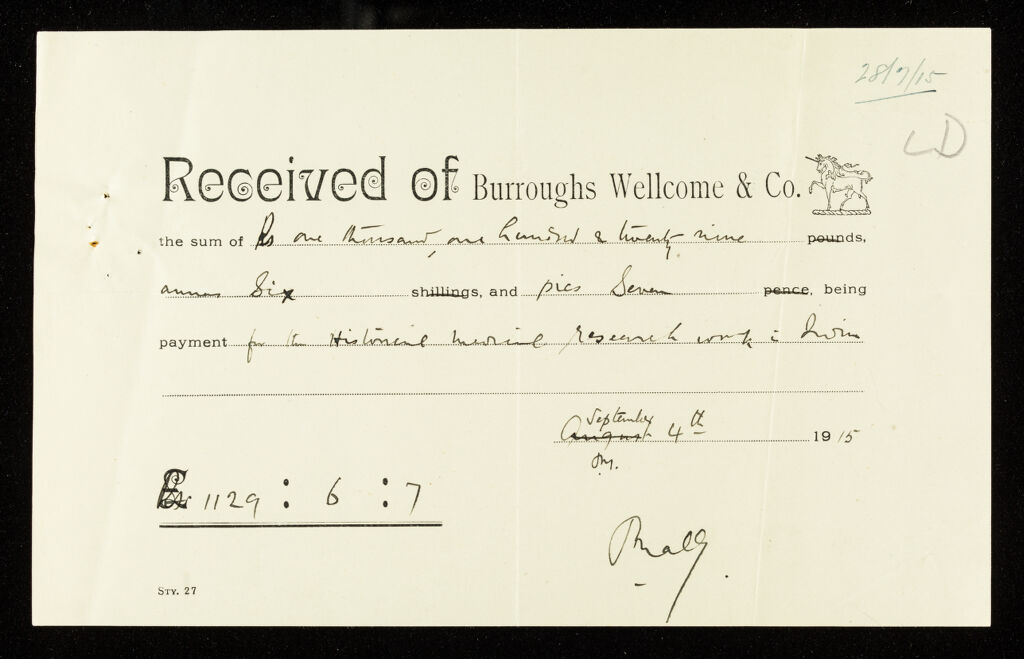 28/7/15
LD
Received of Burroughs Wellcome & Co.
the sum of Rs one thousand, one hundred & twenty nine pounds,
annas Six shillings, and pies Seven pence, being
payment for the Historical medical research work in India
September
August 4th 1915
PM.
Rs 1129 : 6 : 7
Sty. 27